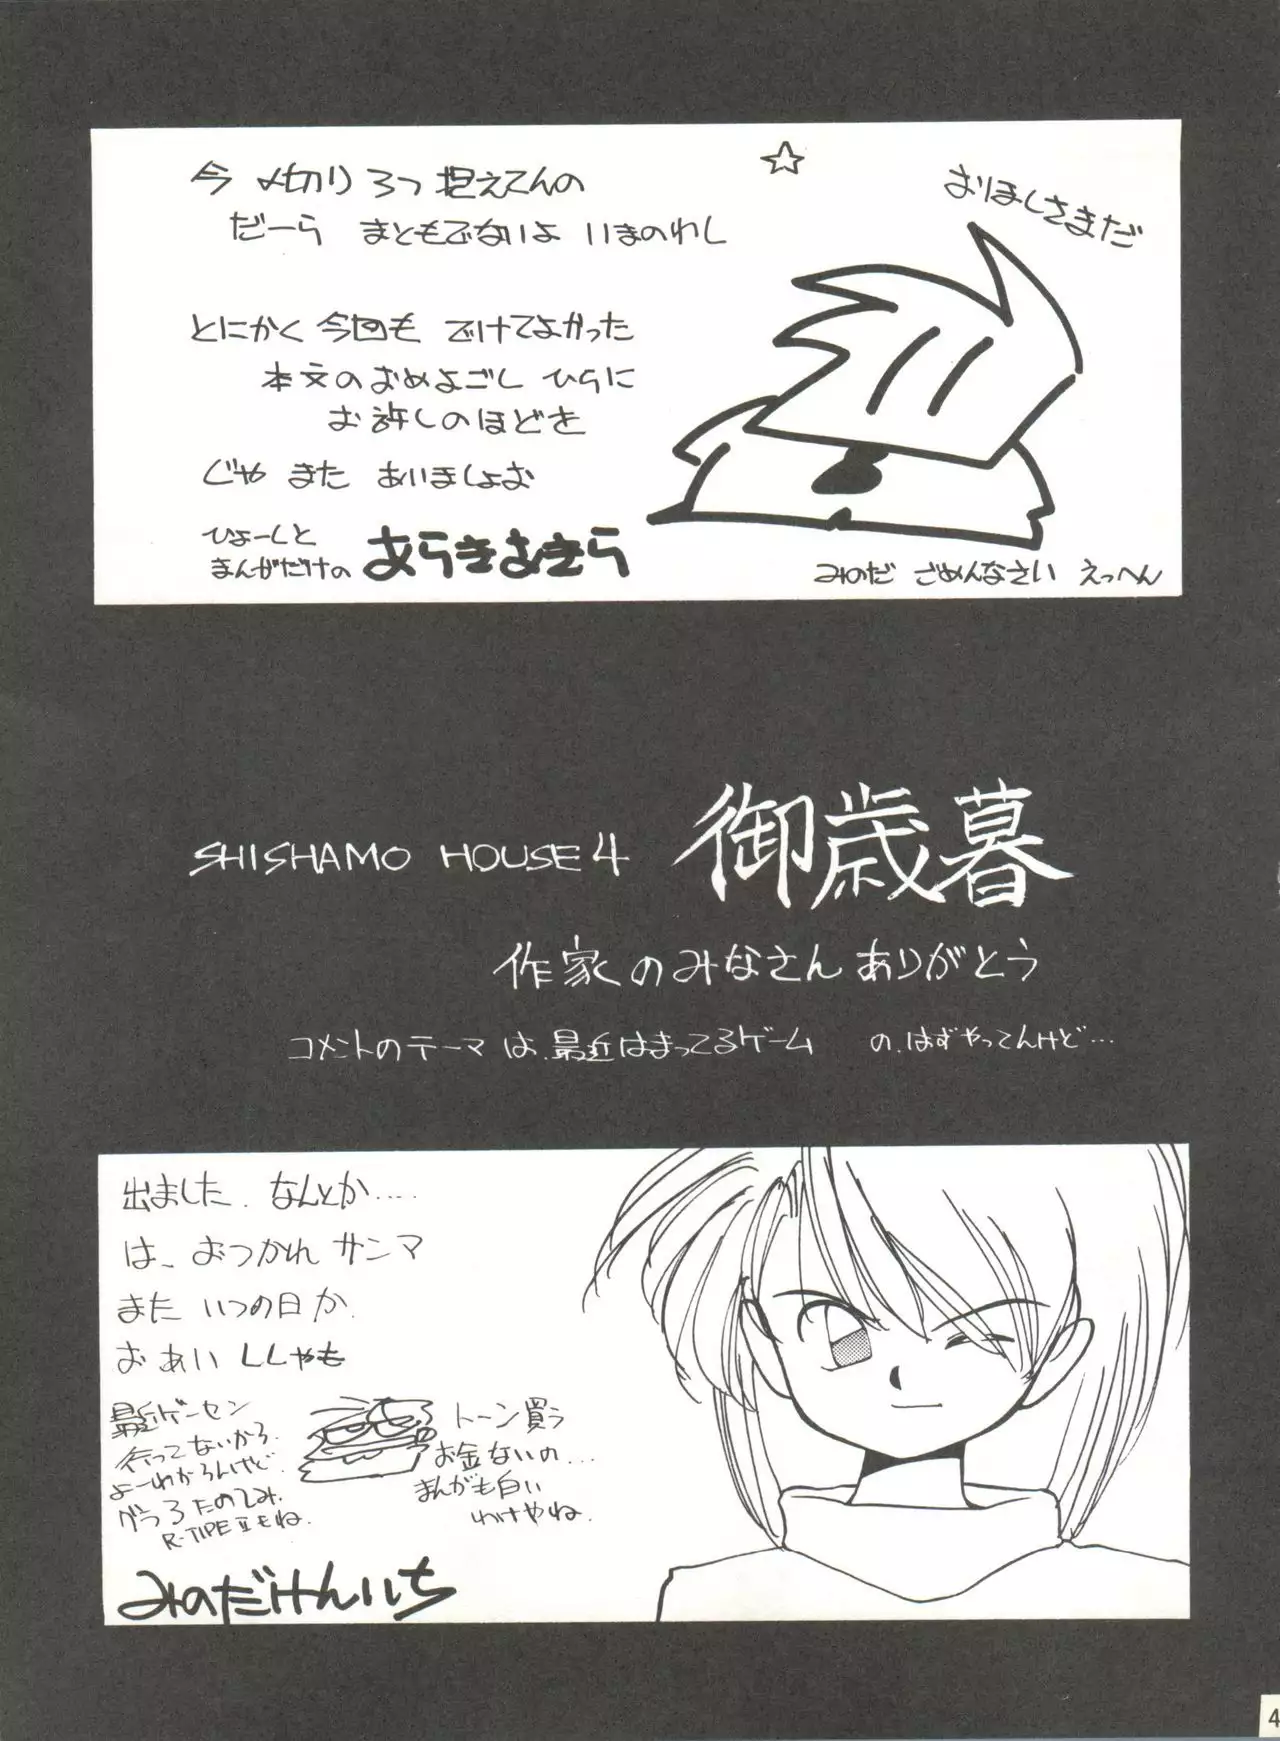 今 〆切り 3つ 抱えてんの
だーら まともでないよ いまのわし
とにかく 今回も でけてよかった
本文のおめよごし ひらに
お許しのほどを
じゃ また あいましょお
ひょーしと
まんがだけの あらきあきら
☆
おほしさまだ
みのだ ごめんなさい えっへん
SHISHAMO HOUSE 4 御歳暮
作家のみなさん ありがとう
コメントのテーマは、最近はまってるゲーム の、はずやってんけど…
出ました、なんとか……
は、おつかれサンマ
また いつの日か
おあい ししゃも
最近ゲーセン
行ってないから
よーわからんけど
グラ3たのしみ
R-TIPEⅡもね
トーン買う
お金ないの…
まんがも白い
わけやね
みのだけんいち
4